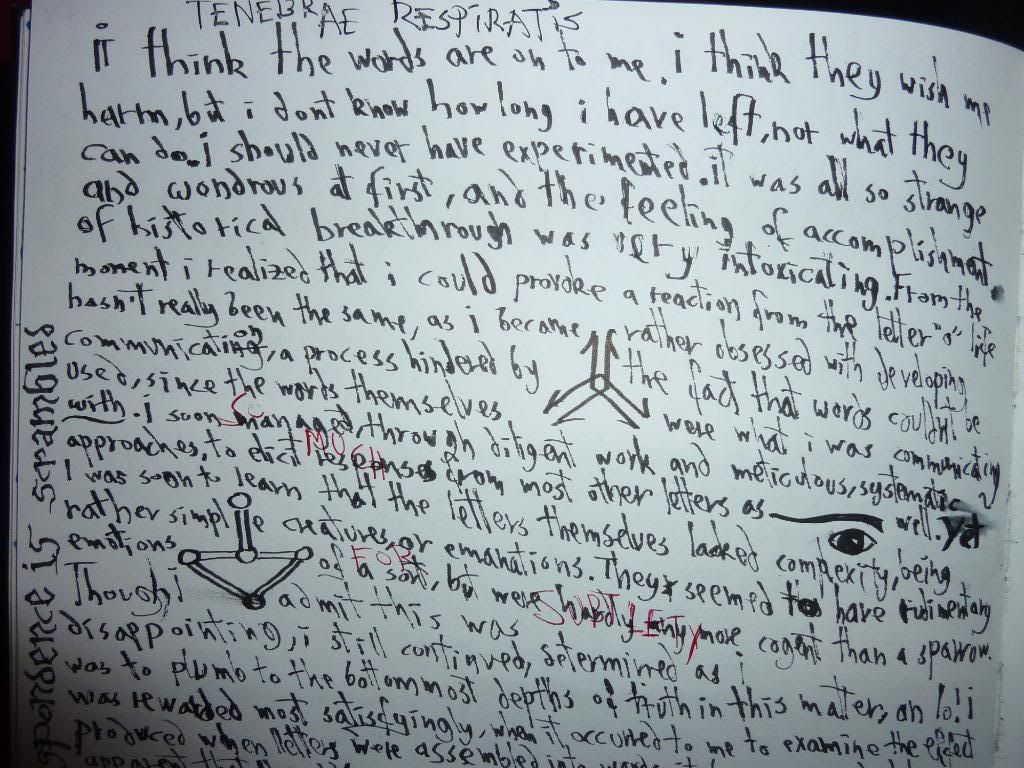 TENEBRAE RESPIRATIS
i think the words are on to me. i think they wish me
harm, but i dont know how long i have left, not what they
can do. i should never have experimented. it was all so strange
and wondrous at first, and the feeling of accomplishment
of historical breakthrough was very intoxicating. From the
moment i realized that i could provoke a reaction from the letter "o" life
hasn't really been the same, as i became rather obsessed with developing
communication, a process hindered by the fact that words couldn't be
used, since the words themselves were what i was communicating
with. i soon managed, through diligent work and meticulous, systematic
approaches, to elicit responses from most other letters as well. yet
I was soon to learn that the letters themselves lacked complexity, being
rather simple creatures, or emanations. They seemed to have rudimentary
emotions of a sort, but were hardly any more cogent than a sparrow.
Though i admit this was
disappointing, i still continued, determined as i
was to plumb to the bottommost depths of truth in this matter, an lo! i
was rewarded most satisfyingly, when it occured to me to examine the effect
produced when letters were assembled into words
apparent that
SO
MUCH
FOR
SUBTLETY
spondence is scrambles